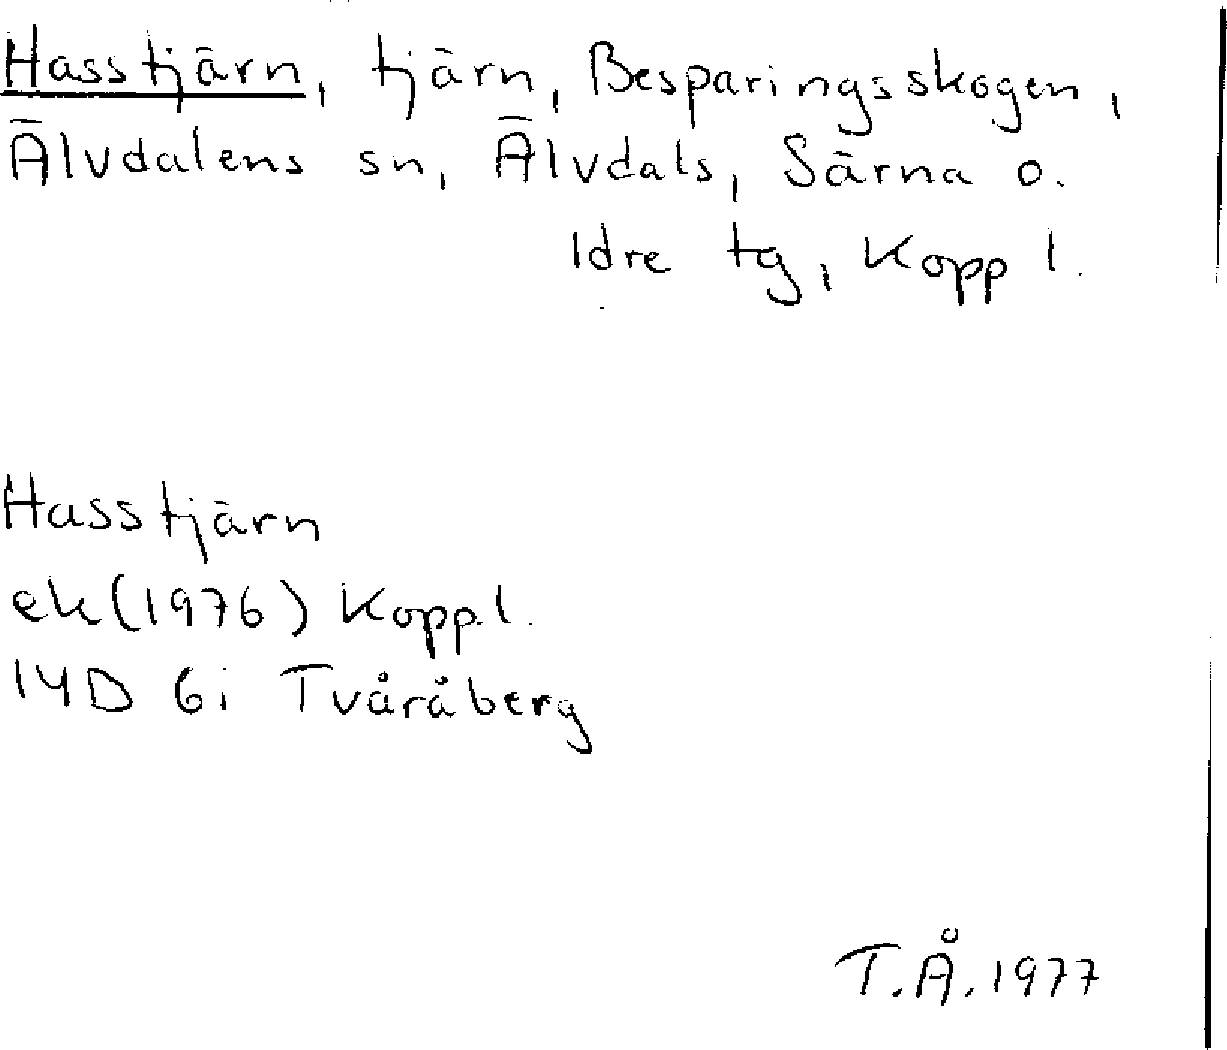 Hasstjärn, tjärn, Besparingsskogen,
Älvdalens sn, Älvdals, Särna o.
Idre tg, Kopp l.
Hasstjärn
ek(1976) Kopp.l.
14D 6i Tvåråberg
T.Å.1977